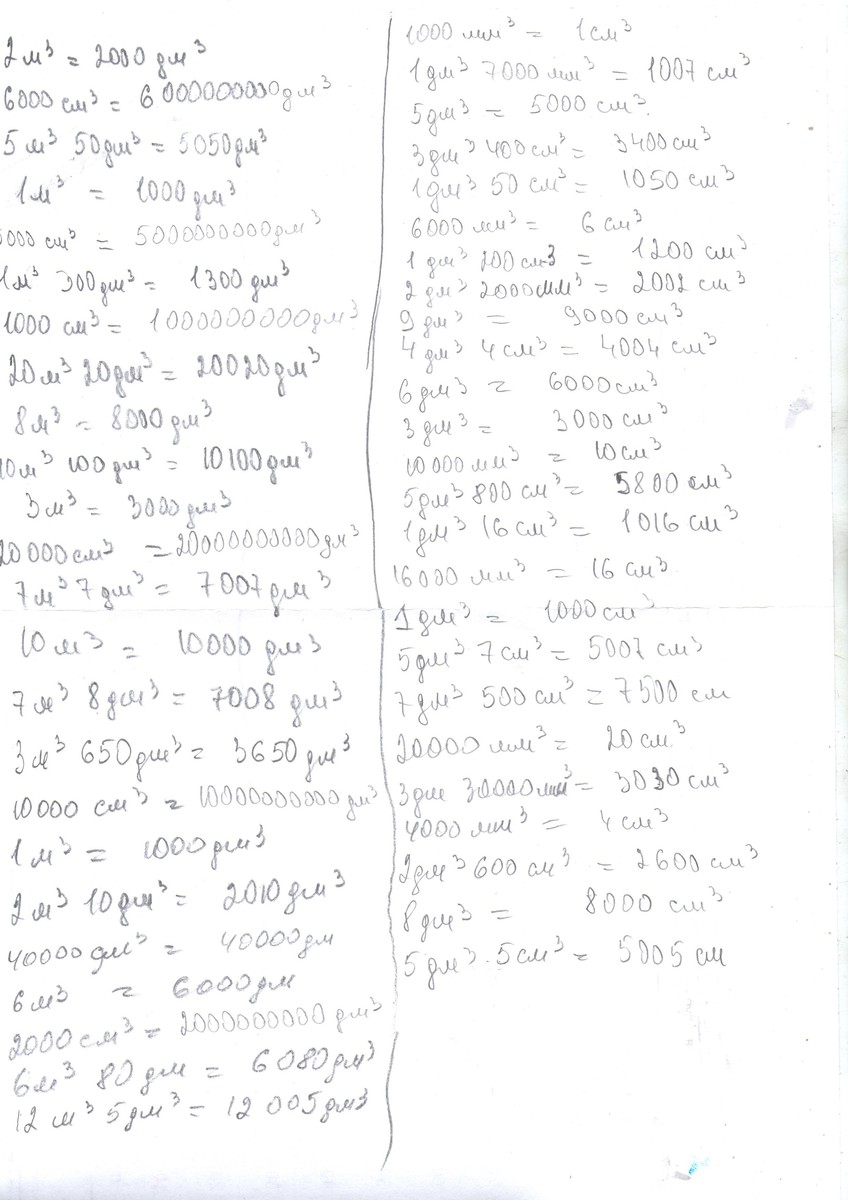 2м³ = 2000 дм³
6000 см³ = 6000000000дм³
5 м³ 50дм³ = 5050дм³
1м³ = 1000дм³
000 см³ = 5000000000дм³
1м³ 300дм³ = 1300 дм³
1000 см³ = 1000000000дм³
20м³ 20дм³ = 20020дм³
8м³ = 8000дм³
10м³ 100дм³ = 10100дм³
3м³ = 3000дм³
20000см³ = 20000000000дм³
7м³ 7дм³ = 7007дм³
10м³ = 10000 дм³
7м³ 8дм³ = 7008 дм³
3м³ 650дм³ = 3650дм³
10000 см³ = 10000000000дм³
1м³ = 1000дм³
2м³ 10дм³ = 2010дм³
40000дм³ = 40000дм
6м³ = 6000дм
2000см³ = 2000000000дм³
6м³ 80дм = 6080дм³
12м³ 5дм³ = 12005дм³
1000мм³ = 1см³
1дм³ 7000мм³ = 1007см³
5дм³ = 5000см³
3дм³ 400см³ = 3400см³
1дм³ 50см³ = 1050см³
6000мм³ = 6см³
1дм³ 200см³ = 1200см³
2дм³ 2000мм³ = 2002см³
9дм³ = 9000см³
4дм³ 4см³ = 4004см³
6дм³ = 6000см³
3дм³ = 3000см³
10000мм³ = 10см³
5дм³ 800см³ = 5800см³
1дм³ 16см³ = 1016см³
16000мм³ = 16см³
1дм³ = 1000см³
5дм³ 7см³ = 5007см³
7дм³ 500см³ = 7500см
20000мм³ = 20см³
3дм 30000мм³ = 3030см³
4000мм³ = 4см³
2дм³ 600см³ = 2600см³
8дм³ = 8000см³
5дм³ 5см³ = 5005см